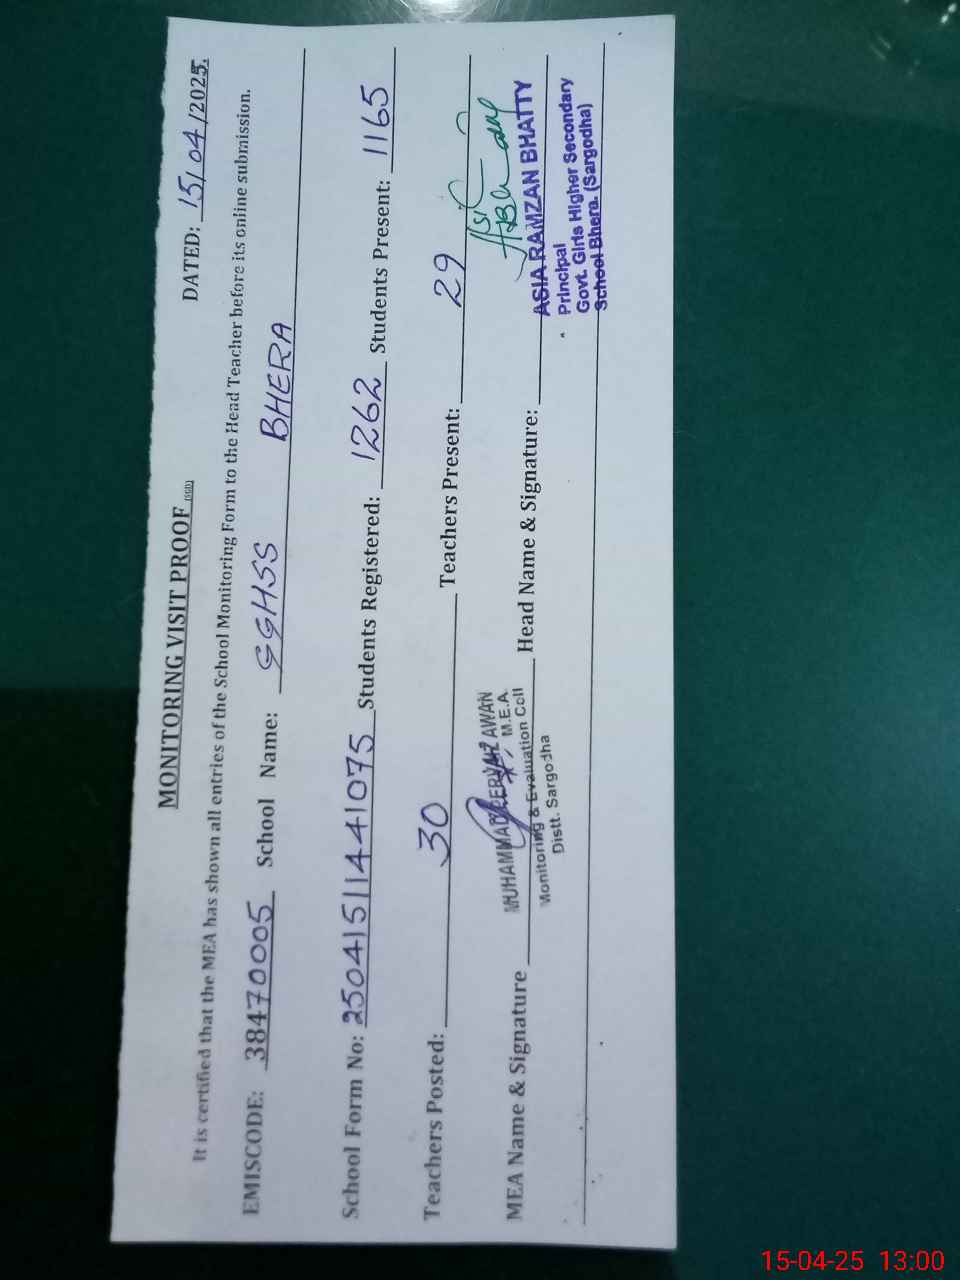 MONITORING VISIT PROOF (SGD)
DATED: 15/04/2025.
It is certified that the MEA has shown all entries of the School Monitoring Form to the Head Teacher before its online submission.
EMISCODE: 38470005 School Name: GGHSS BHERA
School Form No: 25041511441075 Students Registered: 1262 Students Present: 1165
Teachers Posted: 30 Teachers Present: 29
MEA Name & Signature Head Name & Signature:
MUHAMMAD PERVAIZ AWAN
M.E.A.
Monitoring & Evaluation Coll
Distt. Sargodha
ASIA RAMZAN BHATTY
Principal
Govt. Girls Higher Secondary
School Bhera. (Sargodha)
15-04-25 13:00